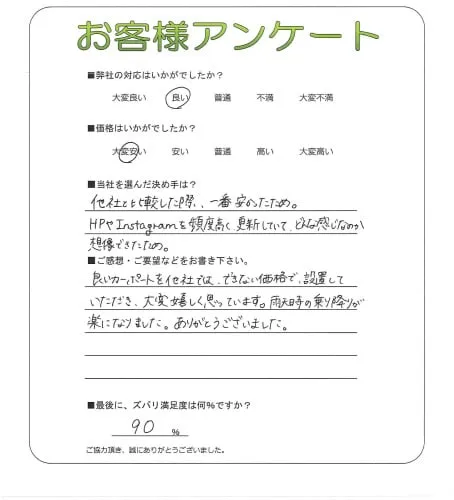 お客様アンケート
■弊社の対応はいかがでしたか？
大変良い 良い 普通 不満 大変不満
■価格はいかがでしたか？
大変安い 安い 普通 高い 大変高い
■当社を選んだ決め手は？
他社と比較した際、一番安かったため。
HPやInstagramを頻度高く、更新していて、どんな感じなのか
想像できたため。
■ご感想・ご要望などをお書き下さい。
良いカーポートを他社では、できない価格で、設置して
いただき、大変嬉しく思っています。雨天時の乗り降りが
楽になりました。ありがとうございました。
■最後に、ズバリ満足度は何%ですか？
90 %
ご協力頂き、誠にありがとうございました。